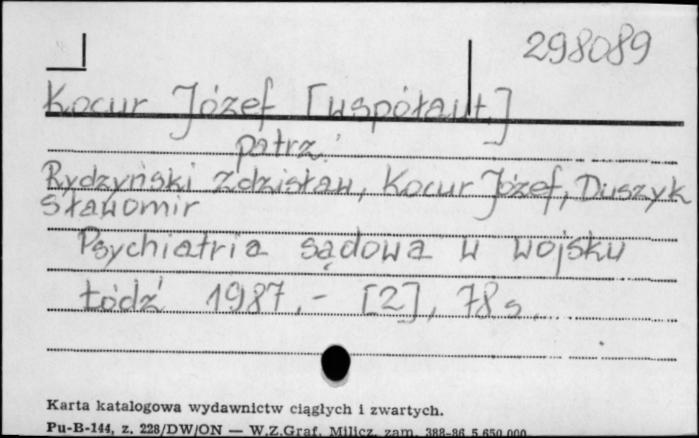 298089
Kocur Józef [współaut.]
patrz:
Rydzyński Zdzisław, Kocur Józef, Duszyk
Sławomir
Psychiatria sądowa w wojsku
Łódź 1987.- [2], 78 s.
Karta katalogowa wydawnictw ciągłych i zwartych.
Pu-B-144, z. 228/DW/ON — W.Z.Graf. Milicz, zam. 388-86 5 650 000